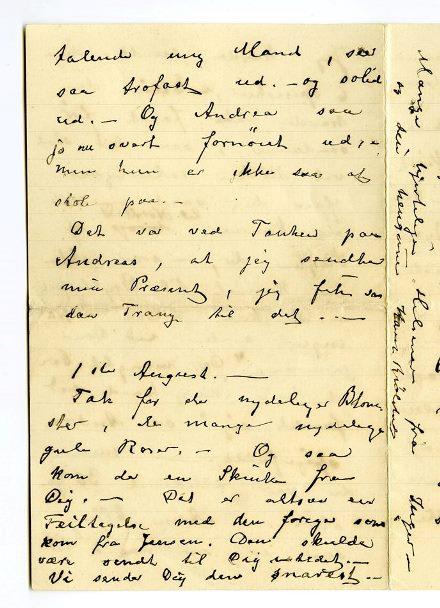 talende ung Mand, ser
saa trofast ud. — og solid
ud. — Og Andrea saa
jo nu svært fornöiet ud,
men hun er ikke saa at
stole paa. —
Det var ved Tanken paa
Andreas, at jeg sendte
min Præsent, jeg fik saa
dan Trang til det. —
1ste August. —
Tak for de nydelige Blom
ster, de mange nydelige
gule Roser. — Og saa
kom der en Skinke fra
Dig. — Det er altsaa en
Feiltagelse med den forige som
kom fra Jensen. Den skulde
være sendt til Dig istedet. —
Vi sender Dig den snarest. —
Mange hjertelige Hilsener fra Inger —
og din hengivne